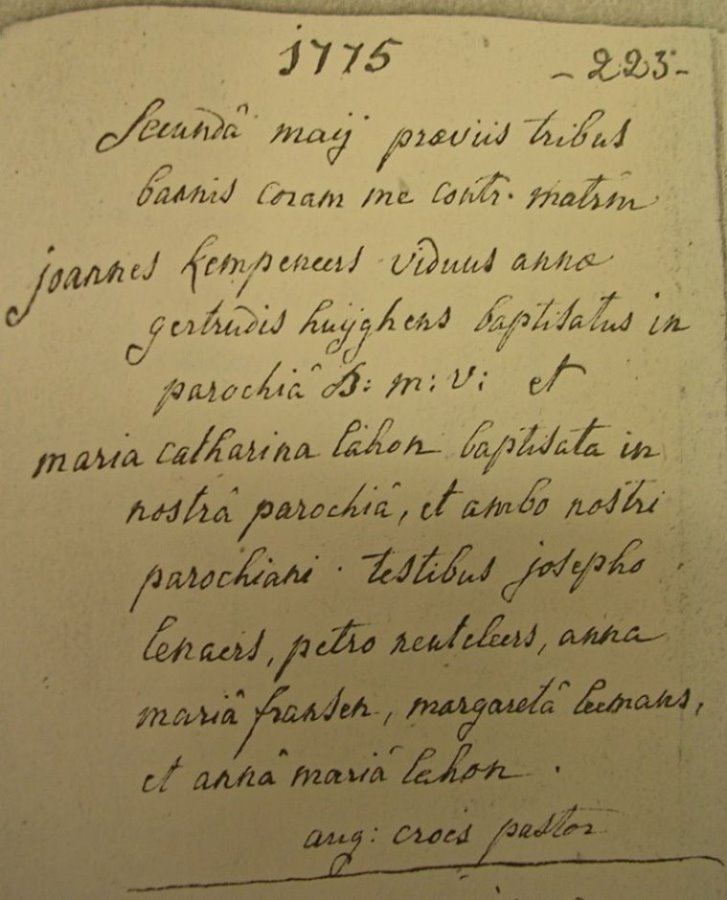 1775 - 223 -
Secundâ maij præviis tribus
bannis coram me contr. matrim
joannes kempeneers viduus annæ
gertrudis huijghens baptisatus in
parochiâ B: m: v: et
maria catharina lahon baptisata in
nostrâ parochiâ, et ambo nostri
parochiani. testibus josepho
lenaers, petro neuteleers, anna
mariâ fransen, margaretâ leemans,
et annâ mariâ lahon.
aug: croes pastor